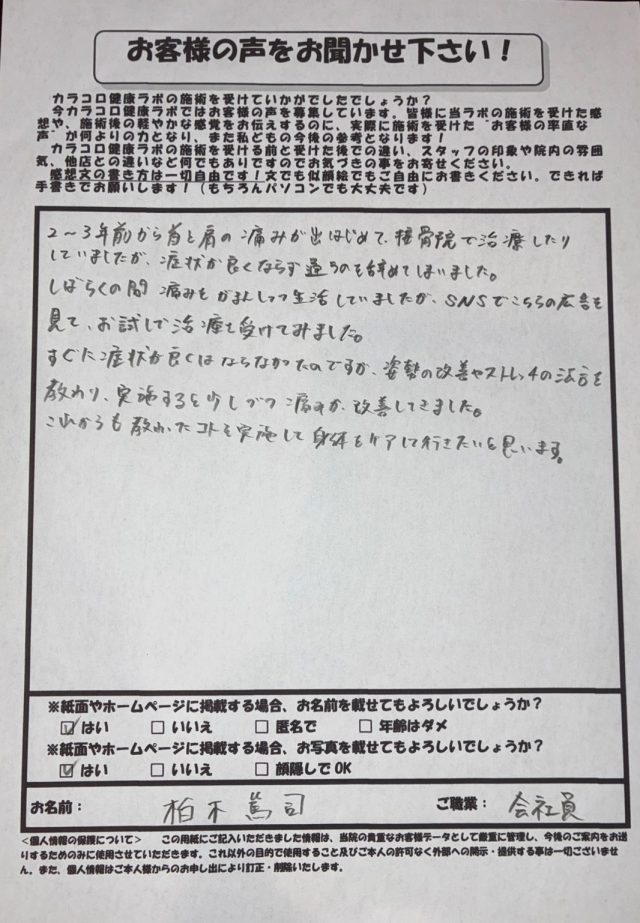 お客様の声をお聞かせ下さい！
カラコロ健康ラボの施術を受けていかがでしたでしょうか？
今カラコロ健康ラボではお客様の声を募集しています。皆様に当ラボの施術を受けた感
想や、施術後の軽やかな感覚をお伝えするのに、実際に施術を受けた“お客様の率直な
声”が何よりの力となり、また私どもの今後の参考となります！
カラコロ健康ラボの施術を受ける前と受けた後での違い、スタッフの印象や院内の雰囲
気、他店との違いなど何でもありですのでお気づきの事をお寄せください。
感想文の書き方は一切自由です！文でも似顔絵でもご自由にお書きください。できれば
手書きでお願いします！（もちろんパソコンでも大丈夫です）
2～3年前から首と肩の痛みが出はじめて、接骨院で治療したり
していましたが、症状が良くならず通うのを辞めてしまいました。
しばらくの間 痛みをがまんしつつ生活していましたが、SNSでこちらの広告を
見て、お試しで治療を受けてみました。
すぐに症状が良くはならなかったのですが、姿勢の改善やストレッチの方法を
教わり、実施すると少しづつ痛みが改善してきました。
これからも教わったコトを実施して身体をケアして行きたいと思います。
※紙面やホームページに掲載する場合、お名前を載せてもよろしいでしょうか？
☑はい □いいえ □匿名で □年齢はダメ
※紙面やホームページに掲載する場合、お写真を載せてもよろしいでしょうか？
☑はい □いいえ □顔隠しでOK
お名前： 柏木篤司 ご職業： 会社員
＜個人情報の保護について＞ この用紙にご記入いただきました情報は、当院の貴重なお客様データとして厳重に管理し、今後のご案内をお送
りするためのみに使用させていただきます。これ以外の目的で使用すること及びご本人の許可なく外部への開示・提供する事は一切ございませ
ん。また、個人情報はご本人様からのお申し出により訂正・削除いたします。